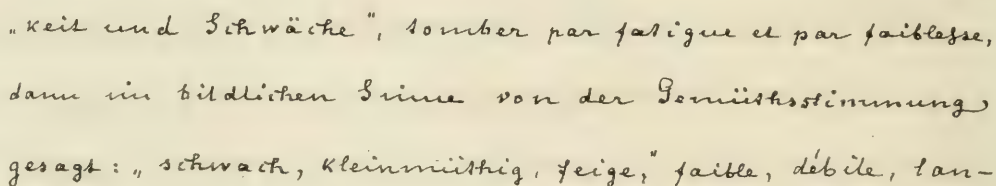 „keit und Schwäche", tomber par fatigue et par faiblesse,
dann im bildlichen Sinne von der Gemüthsstimmung
gesagt: „schwach, kleinmüthig, feige," faible, débile, lan-